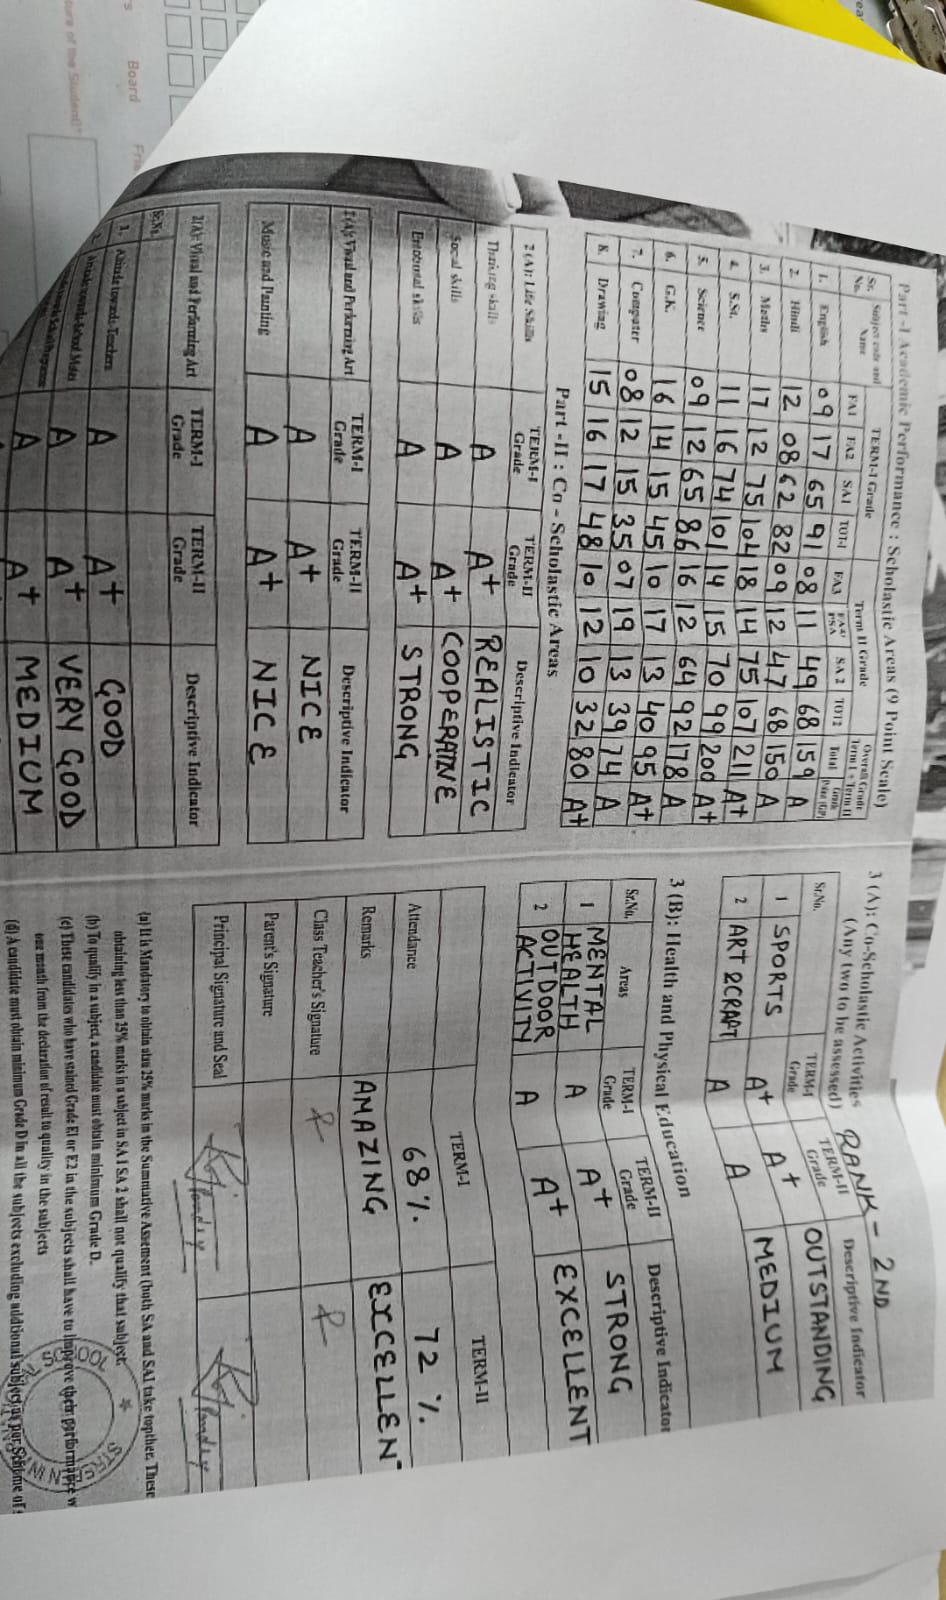 Part -I Academic Performance : Scholastic Areas (9 Point Scale)
Sr. No. Subject code and Name TERM-I Grade Term II Grade Overall Grade Term I + Term II
FA1 FA2 SA1 TOT-1 FA3 FA4/ PSA SA 2 TOT2 Total Grade Point (GP)
1. English 09 17 65 91 08 11 49 68 159 A
2. Hindi 12 08 62 82 09 12 47 68 150 A
3. Maths 17 12 75 104 18 14 75 107 211 A+
4. S.St. 11 16 74 101 14 15 70 99 200 A+
5. Science 09 12 65 86 16 12 64 92 178 A
6. G.K. 16 14 15 45 10 17 13 40 95 A+
7. Computer 08 12 15 35 07 19 13 39 74 A
8. Drawing 15 16 17 48 10 12 10 32 80 A+
Part -II : Co - Scholastic Areas
2 (A): Life Skills TERM-I Grade TERM-II Grade Descriptive Indicator
Thinking skills A A+ REALISTIC
Social skills A A+ COOPERATIVE
Emotional skills A A+ STRONG
2(A): Visual and Performing Art TERM-I Grade TERM-II Grade Descriptive Indicator
A A+ NICE
Music and Painting A A+ NICE
2(A): Visal and Performing Art TERM-I Grade TERM-II Grade Descriptive Indicator
Sr.No.
1. Attitude towards Teachers A A+ GOOD
2. Attitude towards School Mates A A+ VERY GOOD
A A+ MEDIUM
3 (A): Co-Scholastic Activities RANK - 2ND
(Any two to be assessed)
Sr.No. TERM-I Grade TERM-II Grade Descriptive Indicator
1 SPORTS A+ A+ OUTSTANDING
2 ART & CRAFT A A MEDIUM
3 (B): Health and Physical Education
Sr.No. Areas TERM-I Grade TERM-II Grade Descriptive Indicator
1 MENTAL HEALTH A A+ STRONG
2 OUTDOOR ACTIVITY A A+ EXCELLENT
TERM-I TERM-II
Attendance 68% 72 %
Remarks AMAZING EXCELLEN
Class Teacher's Signature
Parent's Signature
Principal Signature and Seal
(a) It is Mandatory to obtain atan 25% marks in the Summative Assement (both SA and SA1 take togther. These
obtaining less than 25% marks in a subject in SA 1 SA 2 shall not qualify that subject.
(b) To qualify in a subject, a candidate must obtain minimum Grade D.
(c) Those candidates who have stained Grade E1 or E2 in the subjects shall have to improve their performance w
one month from the declaration of result to quality in the subjects
(d) A candidate must obtain minimum Grade D in all the subjects excluding additional subject as per Scheme of
Board
ture of the Student)